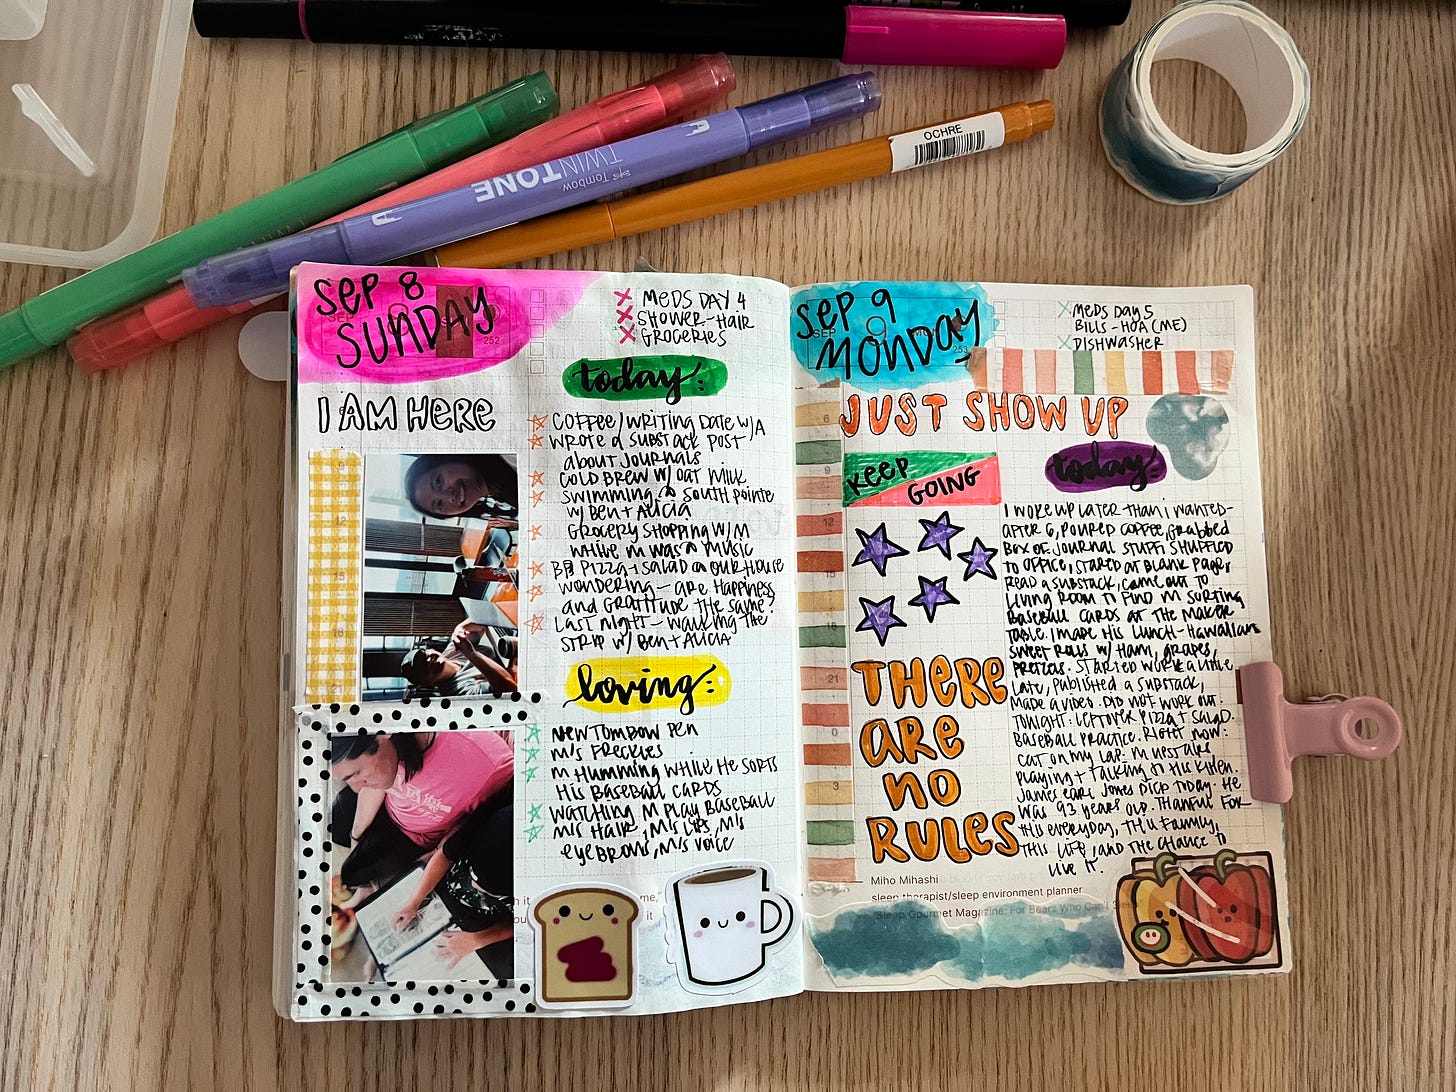 OCHRE
Tombow
TWINTONE
SEP 8
SUNDAY
252
MEDS DAY 4
SHOWER-HAIR
GROCERIES
today:
I AM HERE
COFFEE/WRITING DATE W/A
WROTE A SUBSTACK POST
ABOUT JOURNALS
COLD BREW W/ OAT MILK
SWIMMING @ SOUTH POINTE
W/ BEN + ALICIA
GROCERY SHOPPING W/M
WHILE M WAS @ MUSIC
PIZZA + SALAD @ OUR HOUSE
WONDERING - ARE HAPPINESS
AND GRATITUDE THE SAME?
LAST NIGHT - WALKING THE
STRIP W/ BEN + ALICIA
loving:
NEW TOMBOW PEN
M'S FRECKLES
M HUMMING WHILE HE SORTS
HIS BASEBALL CARDS
WATCHING M PLAY BASEBALL
M'S HAIR, M'S LIPS, M'S
EYEBROWS, M'S VOICE
SEP 9
MONDAY
253
MEDS DAY 5
BILLS - HOA (ME)
DISHWASHER
JUST SHOW UP
today:
KEEP
GOING
THERE
ARE
NO
RULES
6
9
12
15
18
21
0
3
I WOKE UP LATER THAN I WANTED -
AFTER 6, POURED COFFEE, GRABBED
BOX OF JOURNAL STUFF, SHUFFLED
TO OFFICE, STARED AT BLANK PAGE,
READ A SUBSTACK, CAME OUT TO
LIVING ROOM TO FIND M SORTING
BASEBALL CARDS AT THE MAKER
TABLE. I MADE HIS LUNCH - HAWAIIAN
SWEET ROLLS W/ HAM, GRAPES,
PRETZELS. STARTED WORK A LITTLE
LATE, PUBLISHED A SUBSTACK,
MADE A VIDEO. DID NOT WORK OUT.
TONIGHT: LEFTOVER PIZZA + SALAD.
BASEBALL PRACTICE. RIGHT NOW:
CAT ON MY LAP. M UPSTAIRS
PLAYING + TALKING TO HIS
JAMES EARL JONES DIED TODAY. HE
WAS 93 YEARS OLD. THANKFUL FOR
THIS EVERYDAY, THIS FAMILY,
THIS LIFE, AND THE CHANCE TO
LIVE IT.
Miho Mihashi
sleep therapist/sleep environment planner
"Sleep Gourmet Magazine: For Bears Who Can't